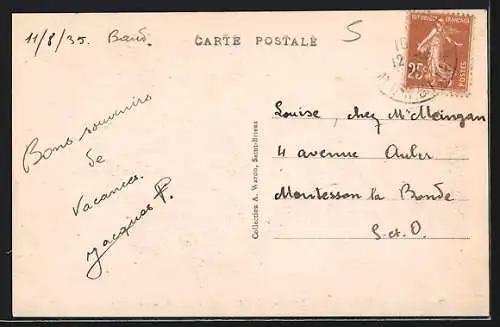 11/8/35. Baud.
CARTE POSTALE
5
REPUBLIQUE FRANÇAISE
25c
POSTES
Bons souvenirs
de
Vacances.
Jacques P.
Collection A. Waron, Saint-Brieuc
Louise, chez Mr Meingan
4 avenue
Montesson la Borde
S. et O.